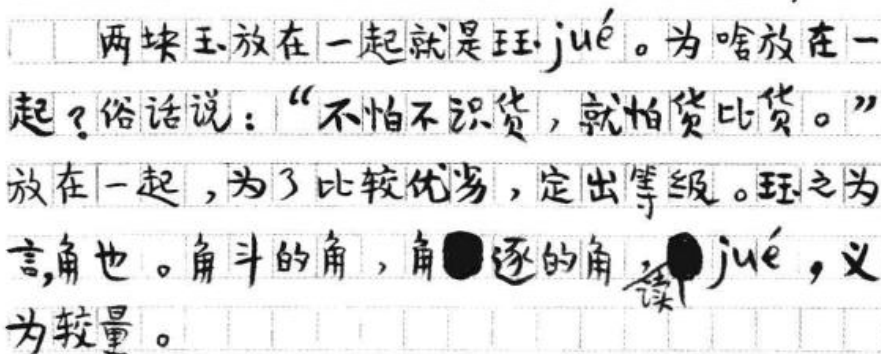 两块玉放在一起就是玨jué。为啥放在一
起？俗话说：“不怕不识货，就怕货比货。”
放在一起，为了比较优劣，定出等级。玨之为
言，角也。角斗的角，角逐的角，读jué，义
为较量。